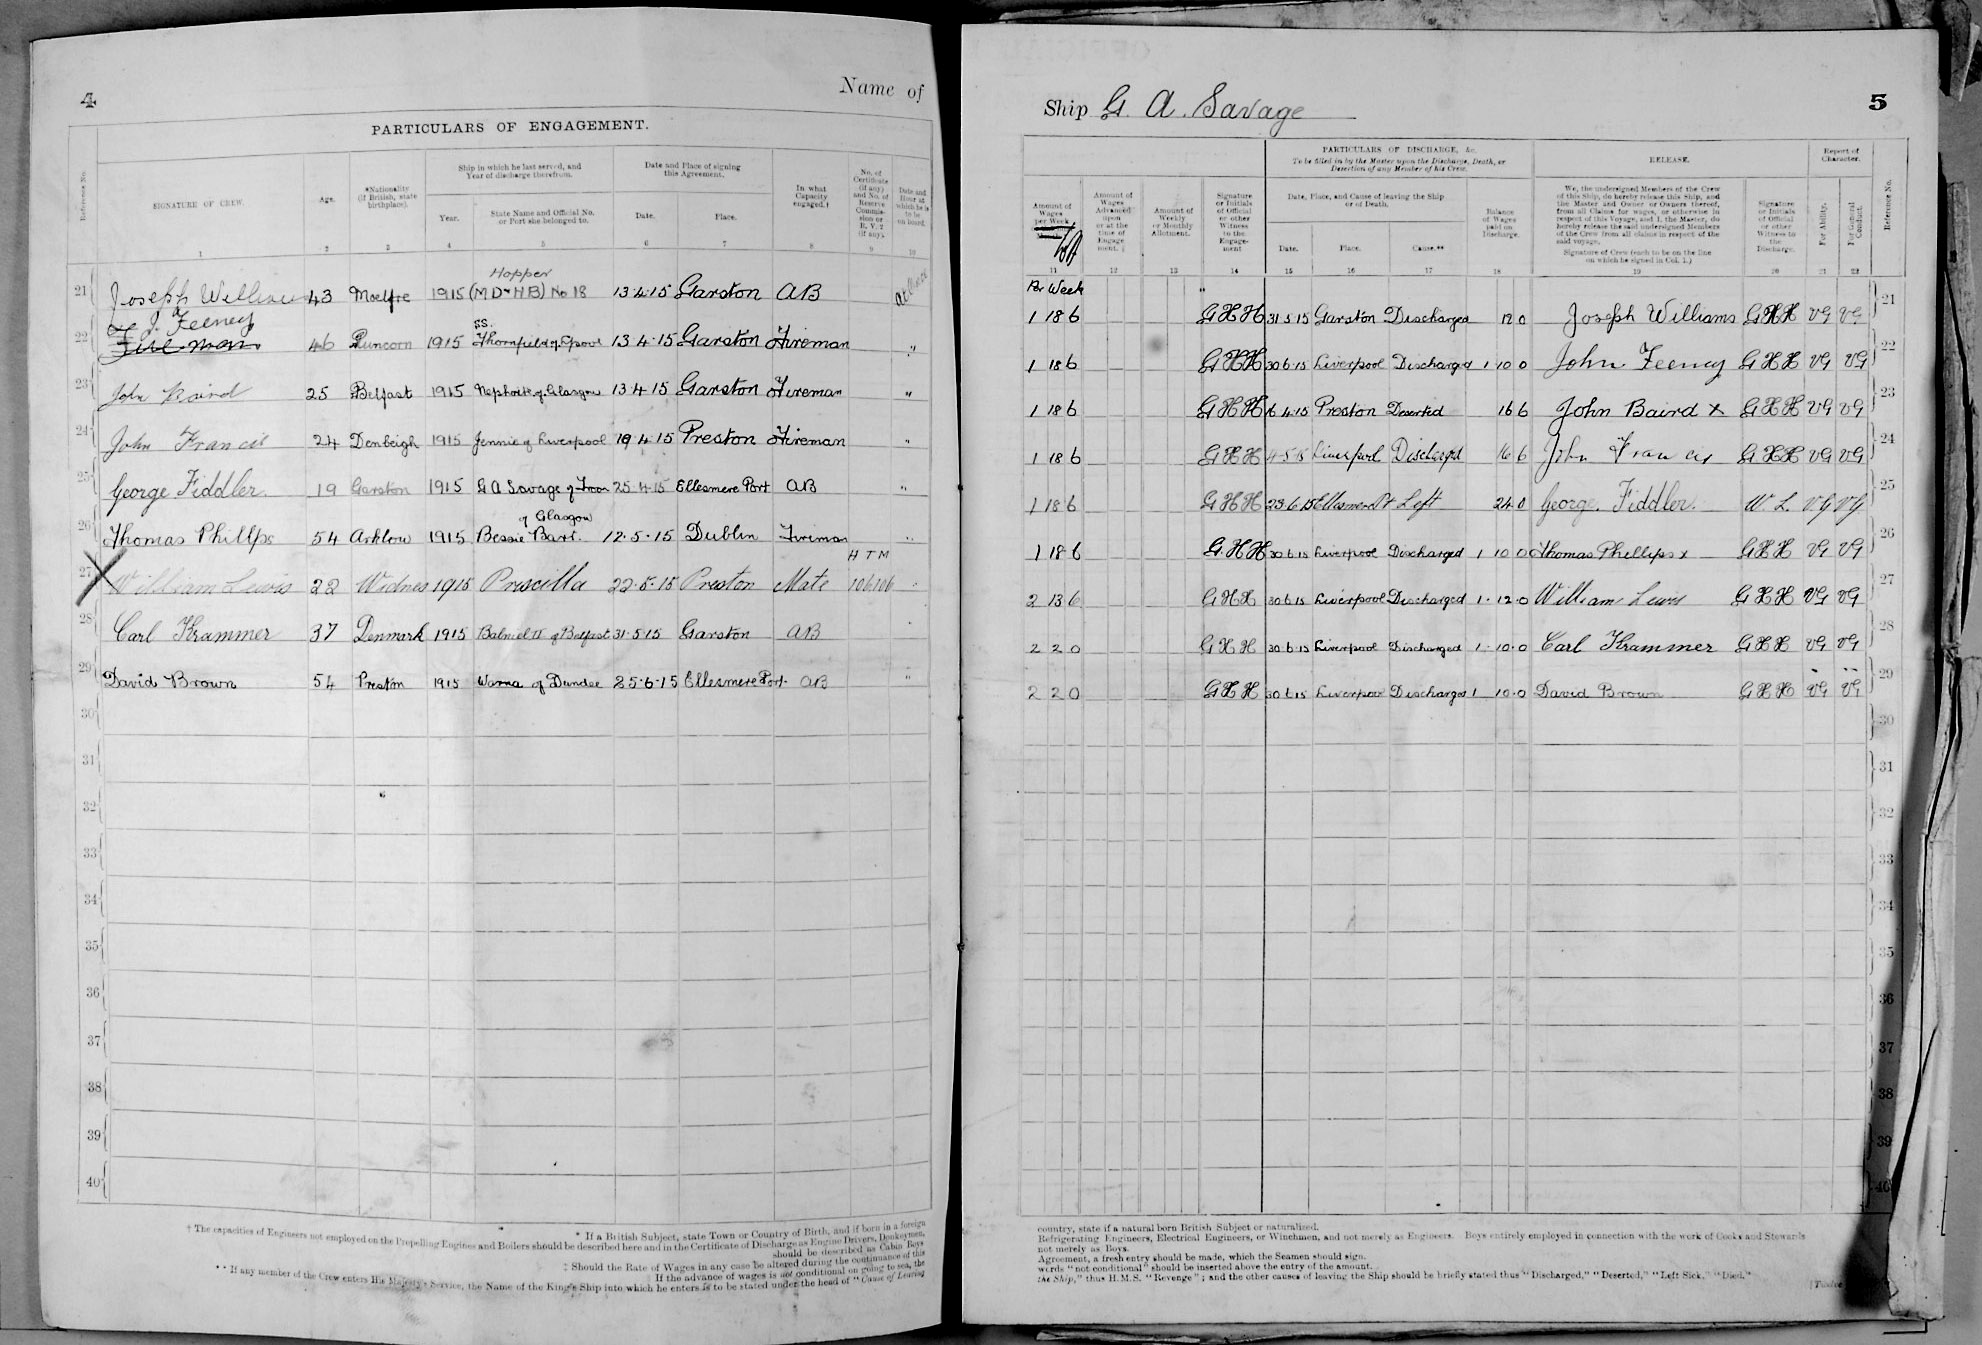 4
Name of
PARTICULARS OF ENGAGEMENT.
Reference No.
SIGNATURE OF CREW.
Age.
*Nationality (if British, state birthplace).
Ship in which he last served, and Year of discharge therefrom.
Year.
State Name and Official No. or Port she belonged to.
Date and Place of signing this Agreement.
Date.
Place.
In what Capacity engaged.†
No. of Certificate (if any) and No. of Reserve Commission or R.V.2 (if any).
Date and Hour at which he is to be on board.
1 2 3 4 5 6 7 8 9 10
Hopper
21 Joseph Williams 43 Moelfre 1915 (M D & H B) No 18 13·4·15 Garston AB At Once
J. Feeney
SS.
22 Fireman 46 Runcorn 1915 Thornfield of Lpool 13·4·15 Garston Fireman "
23 John Baird 25 Belfast 1915 Nephrite of Glasgow 13·4·15 Garston Fireman "
24 John Francis 24 Denbeigh 1915 Jennie of Liverpool 19·4·15 Preston Fireman "
25 George Fiddler. 19 Garston 1915 G A Savage of Troon 25·4·15 Ellesmere Port AB "
of Glasgow
26 Thomas Phillps 54 Arklow 1915 Bessie Barr. 12·5·15 Dublin Fireman "
H T M
27 William Lewis 22 Widnes 1915 Priscilla 22·5·15 Preston Mate 106106 "
28 Carl Krammer 37 Denmark 1915 Balniel II of Belfast 31·5·15 Garston AB "
29 David Brown 54 Preston 1915 Warna of Dundee 25·6·15 Ellesmere Port. AB "
30
31
32
33
34
35
36
37
38
39
40
* If a British Subject, state Town or Country of Birth, and if born in a foreign
† The capacities of Engineers not employed on the Propelling Engines and Boilers should be described here and in the Certificate of Discharge as Engine Drivers, Donkeymen,
should be described as Cabin Boys
‡ Should the Rate of Wages in any case be altered during the continuance of this
If the advance of wages is not conditional on going to sea, the
** If any member of the Crew enters His Majesty's Service, the Name of the King's Ship into which he enters is to be stated under the head of "Cause of Leaving
Ship G. A. Savage
5
PARTICULARS OF DISCHARGE, &c.
To be filled in by the Master upon the Discharge, Death, or Desertion of any Member of his Crew.
RELEASE.
Report of Character.
Amount of Wages per Week
Amount of Wages Advanced upon or at the time of Engagement. ‡
Amount of Weekly or Monthly Allotment.
Signature or Initials of Official or other Witness to the Engagement
Date, Place, and Cause of leaving the Ship or of Death.
Date.
Place.
Cause.**
Balance of Wages paid on Discharge.
We, the undersigned Members of the Crew of this Ship, do hereby release this Ship, and the Master and Owner or Owners thereof, from all Claims for wages, or otherwise in respect of this Voyage, and I, the Master, do hereby release the said undersigned Members of the Crew from all claims in respect of the said voyage.
Signature of Crew (each to be on the line on which he signed in Col. 1.)
Signature or Initials of Official or other Witness to the Discharge.
For Ability.
For General Conduct.
Reference No.
11 12 13 14 15 16 17 18 19 20 21 22
Per Week
1 18 6 G H H 31 5 15 Garston Discharged 12 0 Joseph Williams G H H VG VG 21
1 18 6 G H H 30·6·15 Liverpool Discharged 1 10 0 John Feeney G H H VG VG 22
1 18 6 G H H 16 4·15 Preston Deserted 16 6 John Baird x G H H VG VG 23
1 18 6 G H H 4·5·15 Liverpool Discharged 16 6 John Francis G H H VG VG 24
1 18 6 G H H 23·6·15 Ellesmere Pt Left 24 0 George. Fiddler. W. L. VG VG 25
1 18 6 G. H H 30·6·15 Liverpool Discharged 1 10 0 Thomas Phillips x G H H VG VG 26
2 13 6 G H H 30 6 15 Liverpool Discharged 1·12·0 William Lewis G H H VG VG 27
2 2 0 G H H 30·6·15 Liverpool Discharged 1·10·0 Carl Krammer G H H VG VG 28
2 2 0 G H H 30 6 15 Liverpool Discharged 1 10·0 David Brown G H H VG VG 29
30
31
32
33
34
35
36
37
38
39
40
country, state if a natural born British Subject or naturalized.
Refrigerating Engineers, Electrical Engineers, or Winchmen, and not merely as Engineers. Boys entirely employed in connection with the work of Cooks and Stewards
not merely as Boys.
Agreement, a fresh entry should be made, which the Seamen should sign.
words "not conditional" should be inserted above the entry of the amount.
the Ship," thus H.M.S. "Revenge"; and the other causes of leaving the Ship should be briefly stated thus "Discharged," "Deserted," "Left Sick," "Died."